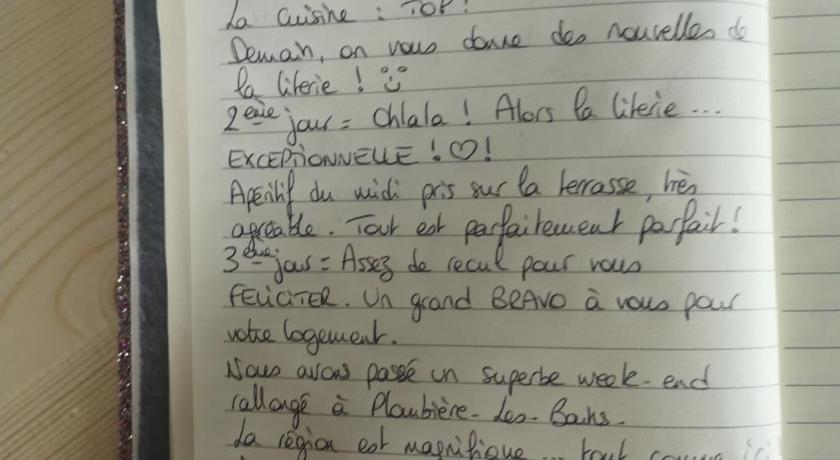 La cuisine : TOP !
Demain, on vous donne des nouvelles de
la literie !
2ème jour = Ohlala ! Alors la literie ...
EXCEPTIONNELLE ! ♡ !
Apéritif du midi pris sur la terrasse, très
agréable. Tout est parfaitement parfait !
3ème jour = Assez de recul pour vous
FELICITER. Un grand BRAVO à vous pour
votre logement.
Nous avons passé un superbe week-end
rallongé à Plombière-les-Bains.
La région est magnifique ... tout comme ici